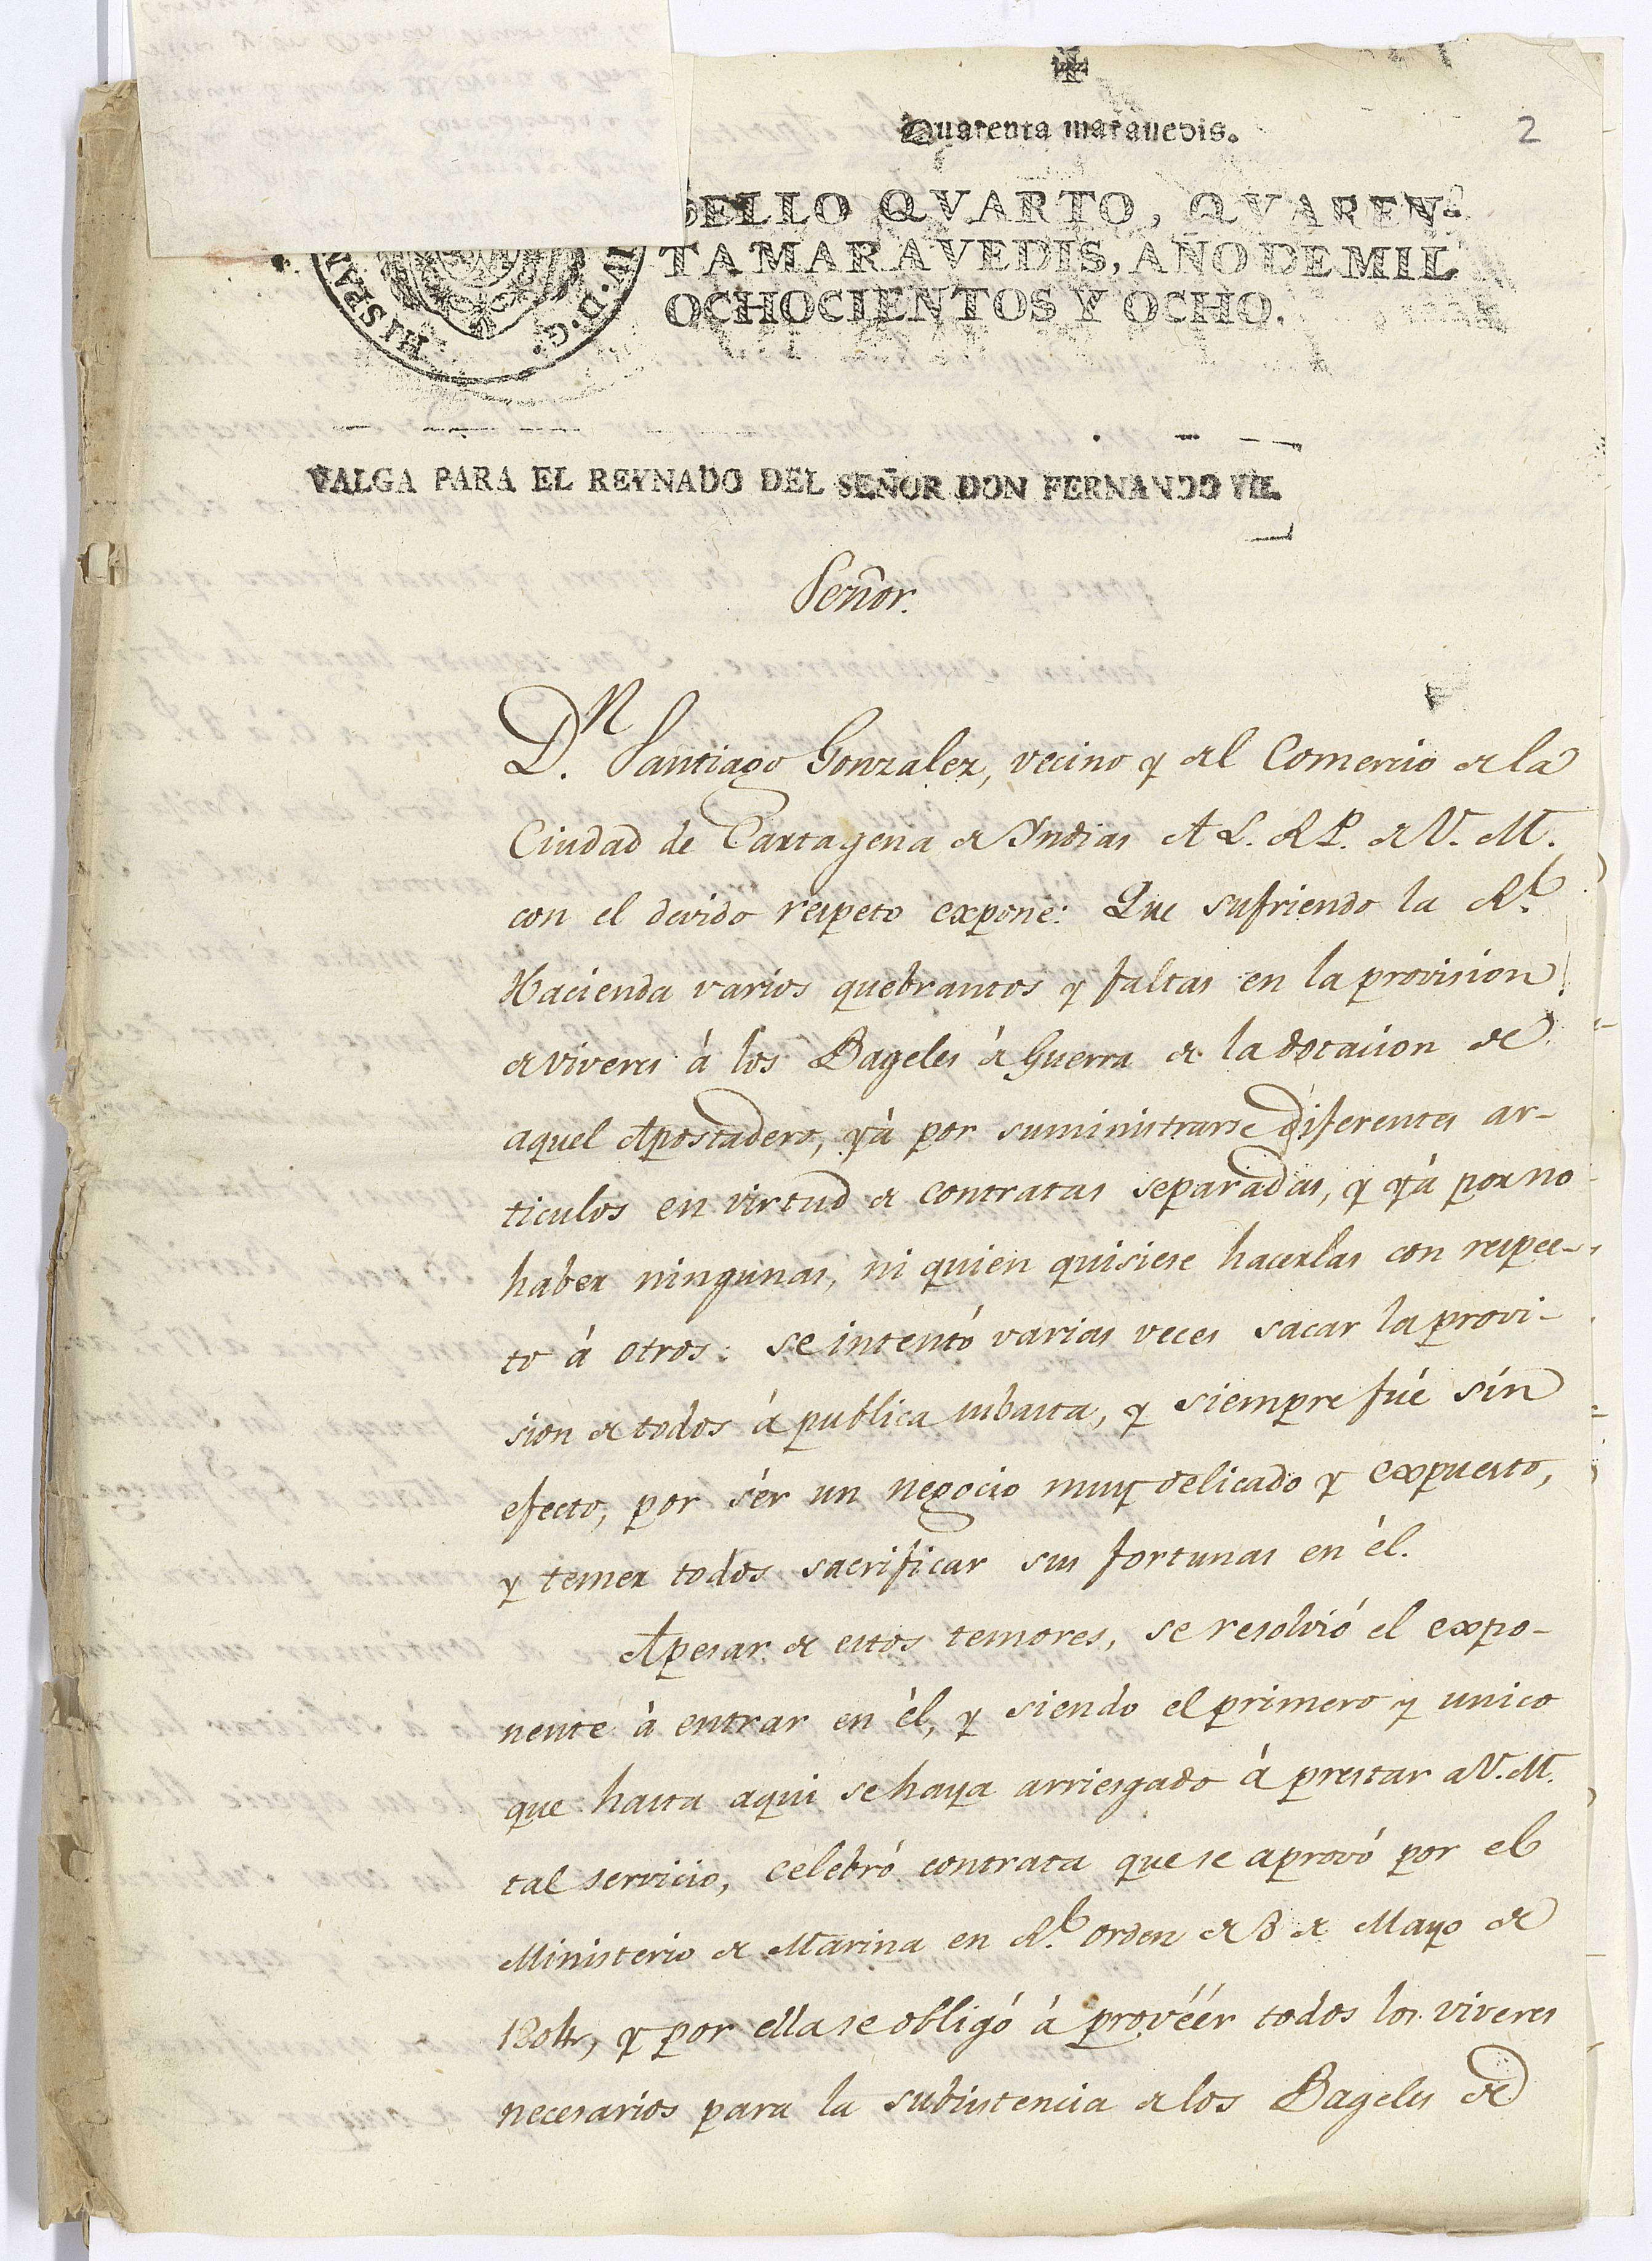 Quarenta maravedis.
2
SELLO QVARTO, QVAREN-
TA MARAVEDIS, AÑO DE MIL
OCHOCIENTOS Y OCHO.
HISPA
D.G.
VALGA PARA EL REYNADO DEL SEÑOR DON FERNANDO VII.
Señor.
D.ⁿ Santiago Gonzalez, vecino y del Comercio de la
Ciudad de Cartagena de Yndias A L. R. P. de V. M.
con el devido respeto expone: Que sufriendo la R.ˡ
Hacienda varios quebrantos y faltas en la provision
de viveres à los Bageles de Guerra de la dotacion de
aquel Apostadero, yà por suministrarse diferentes ar-
ticulos en virtud de contratas separadas, y yà por no
haber ningunas, ni quien quisiese hacerlas con respec-
to à otros: se intentó varias veces sacar la provi-
sion de todos à publica subasta, y siempre fué sin
efecto, por sér un negocio muy delicado y expuesto,
y temer todos sacrificar sus fortunas en él.
Apesar de estos temores, se resolvió el expo-
nente à entrar en èl, y siendo el primero y unico
que hasta aqui se haya arriesgado à prestar a V. M.
tal servicio, celebró contrata que se aprovó por el
Ministerio de Marina en R.ˡ orden de 8 de Mayo de
1804, y por ella se obligó à provéér todos los viveres
necesarios para la subsistencia de los Bageles de